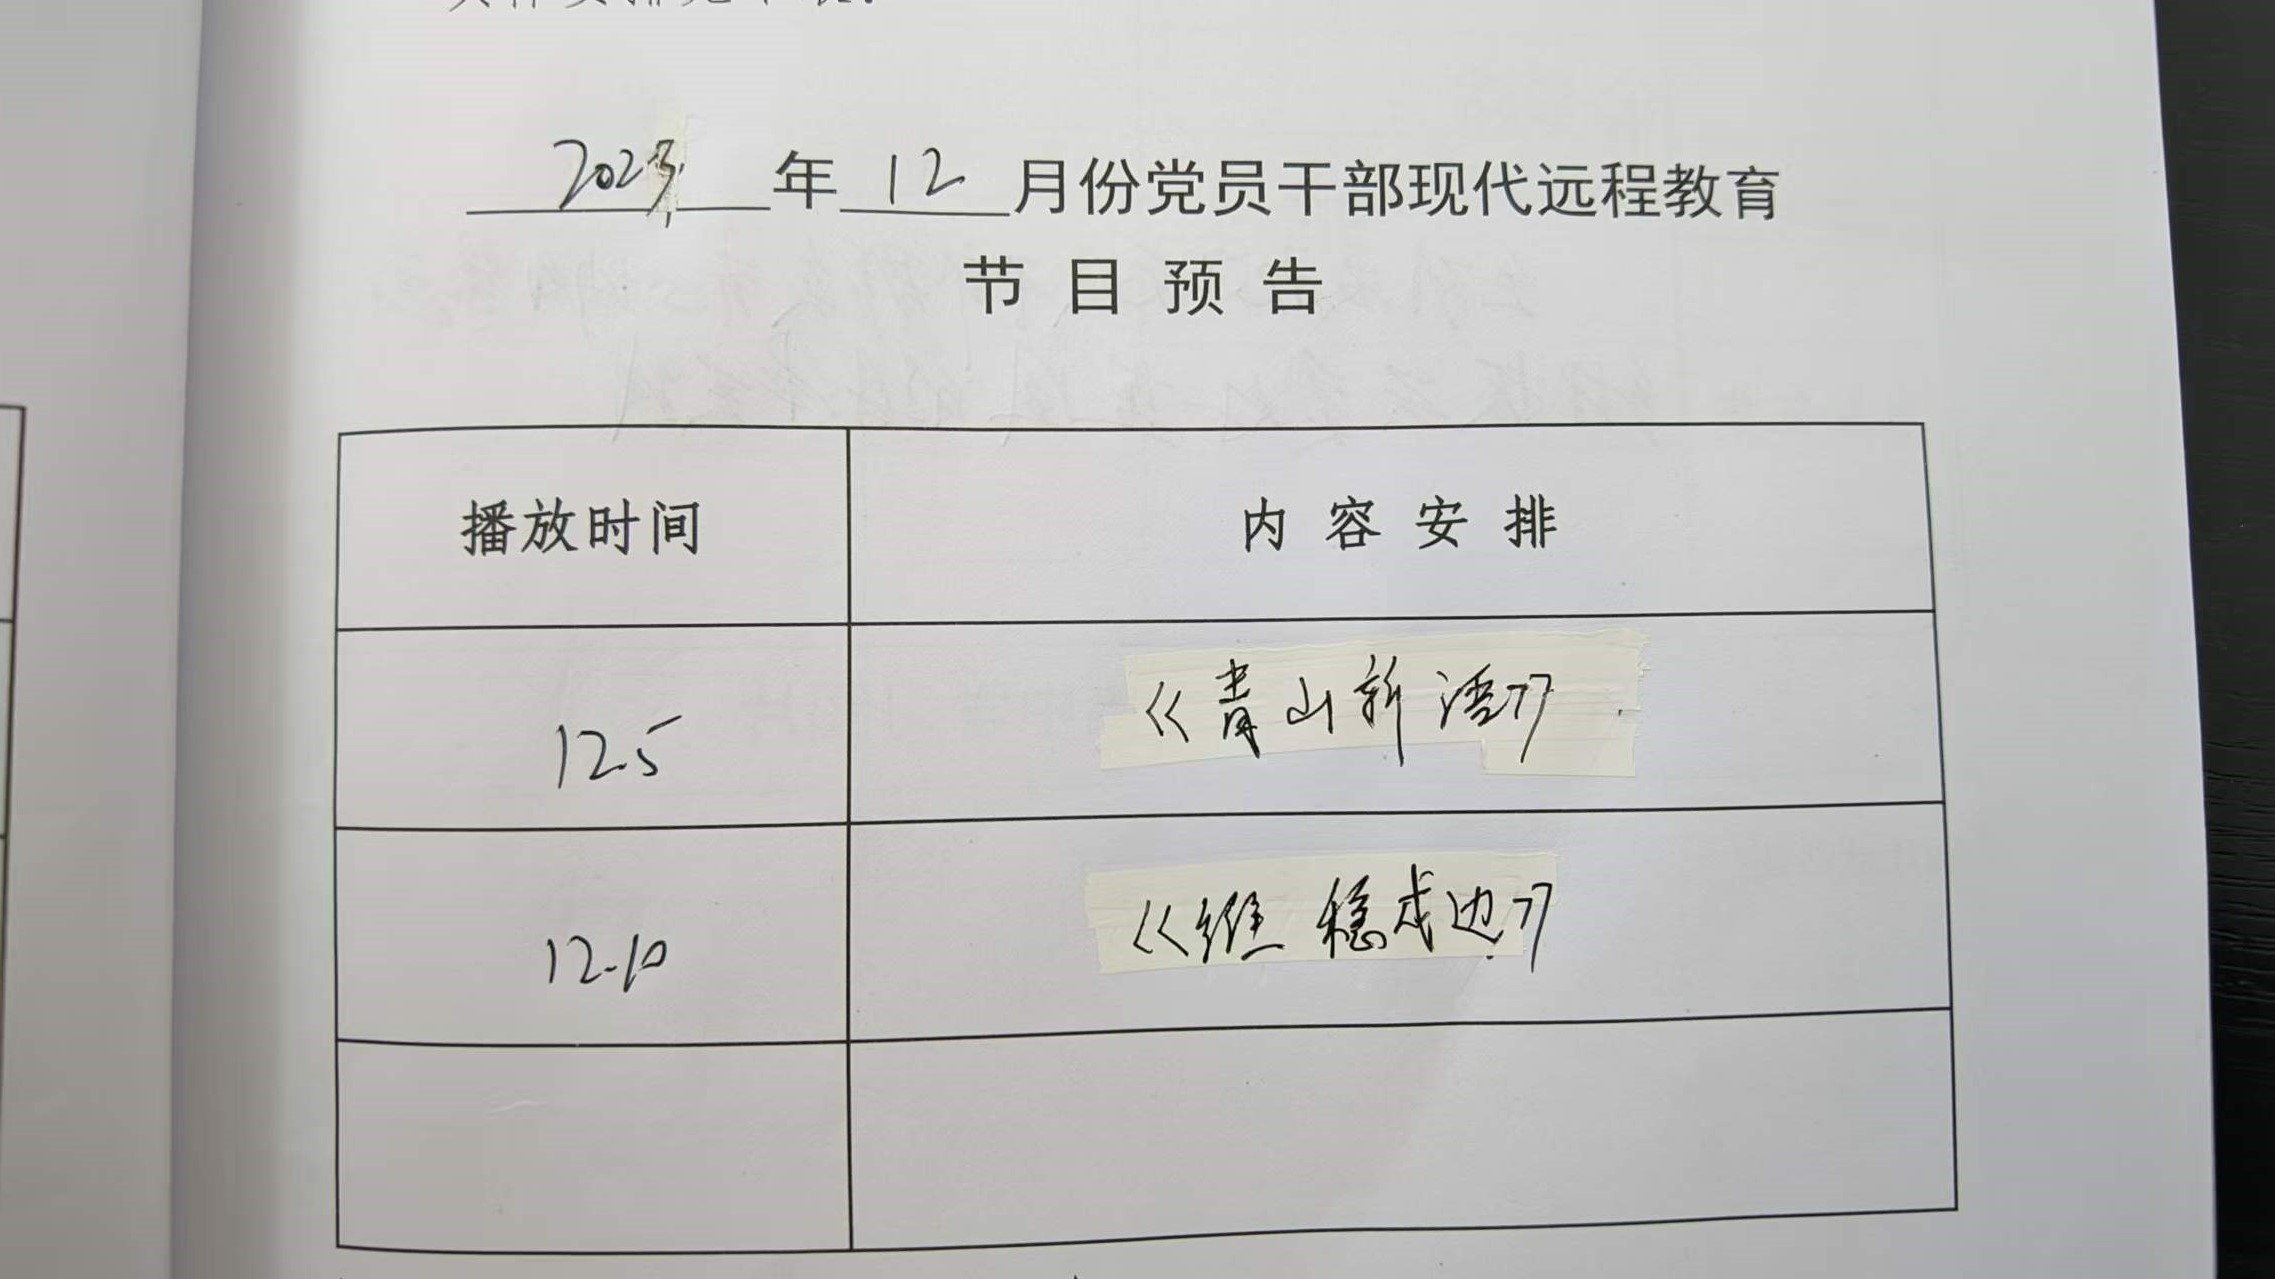 2023年12月份党员干部现代远程教育
节目预告
播放时间 内容安排
12.5 《青山新语》
12.10 《维稳戍边》